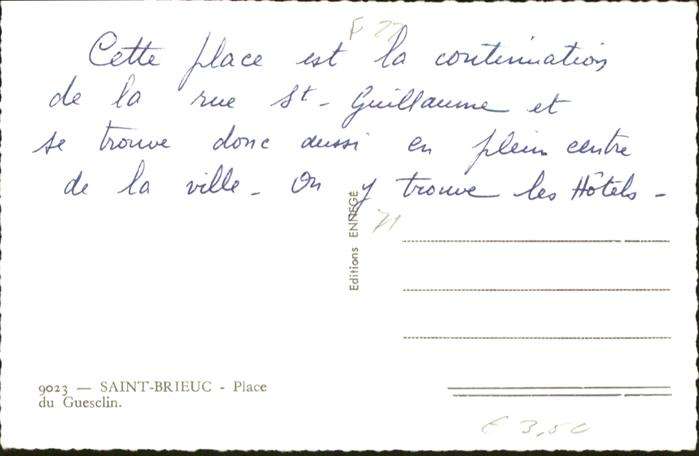 F 22
Cette place est la continuation
de la rue St-Guillaume et
se trouve donc aussi en plein centre
de la ville - On y trouve les Hôtels -
71
Editions ENNEGÉ
9023 — SAINT-BRIEUC - Place
du Guesclin.
F 3,50